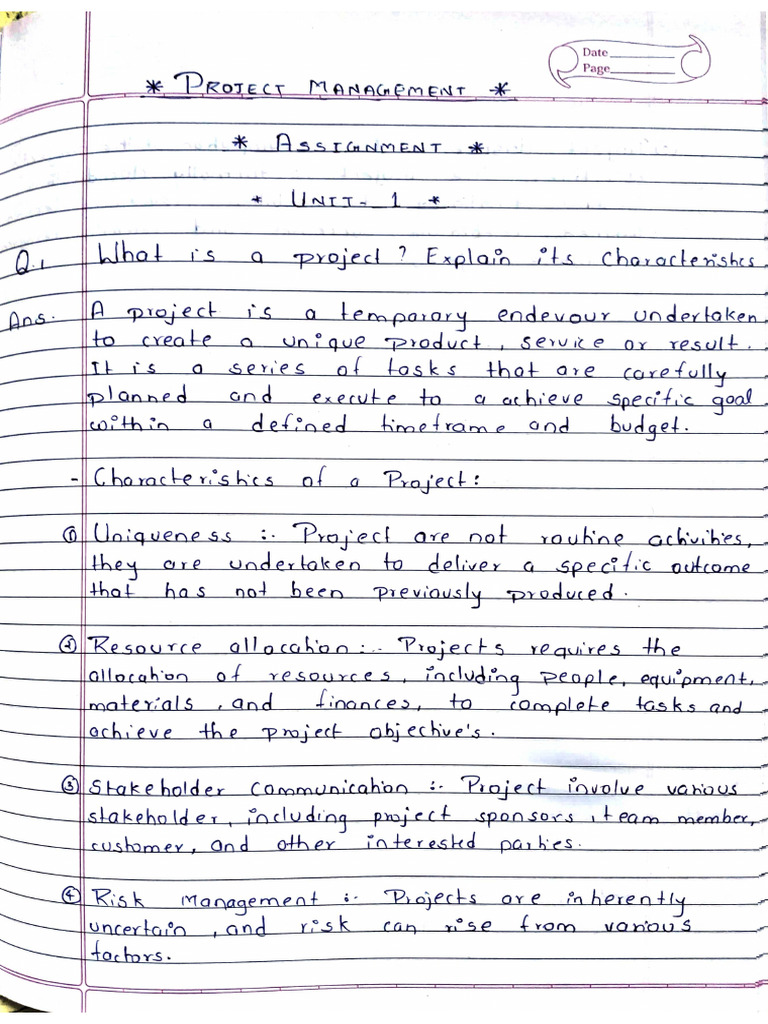 Date
Page
* PROJECT MANAGEMENT *
* ASSIGNMENT *
* UNIT-1 *
Q.1 What is a project? Explain its characteristics
Ans. A project is a temparary endevour undertaken
to create a unique product, service or result.
It is a series of tasks that are carefully
planned and execute to a achieve specific goal
within a defined timeframe and budget.
- Characteristics of a Project:
① Uniqueness :- Project are not routine activities,
they are undertaken to deliver a specific outcome
that has not been previously produced.
② Resource allocation :- Projects requires the
allocation of resources, including people, equipment,
materials, and finances, to complete tasks and
achieve the project objective's.
③ Stakeholder communication :- Project involve various
stakeholder, including project sponsors, team member,
customer, and other interested parties.
④ Risk Management :- Projects are inherently
uncertain, and risk can rise from various
factors.